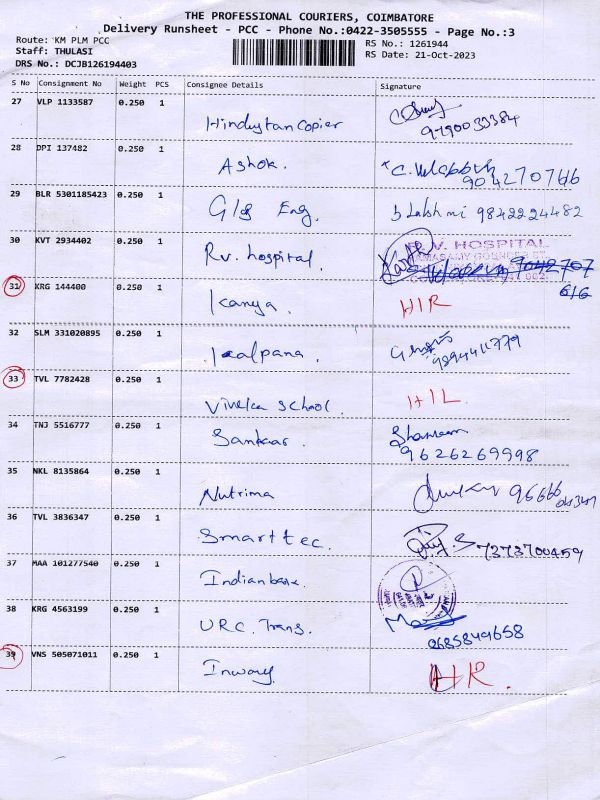 THE PROFESSIONAL COURIERS, COIMBATORE
Delivery Runsheet - PCC - Phone No.:0422-3505555 - Page No.:3
Route: KM PLM PCC
Staff: THULASI
DRS No.: DCJB126194403
RS No.: 1261944
RS Date: 21-Oct-2023
S No Consignment No Weight PCS Consignee Details Signature
27 VLP 1133587 0.250 1
Hindustan Copier
28 DPI 137482 0.250 1
Ashok. 9042707616
29 BLR 5301185423 0.250 1
Eng. Lakshmi 9842224482
30 KVT 2934402 0.250 1
R.V. HOSPITAL
Rv. hospital
31 KRG 144400 0.250 1
Kanya H/R
32 SLM 331020895 0.250 1
Kalpana. 9894411779
33 TVL 7782428 0.250 1
Viveka School. H/L
34 TNJ 5516777 0.250 1
Sankar. 9626269998
35 NKL 8135864 0.250 1
Nutrima
36 TVL 3836347 0.250 1
Smart tec. 7373700459
37 MAA 101277540 0.250 1
Indian bank.
38 KRG 4563199 0.250 1
URC. Trans.
39 VNS 505071011 0.250 1
H/R.